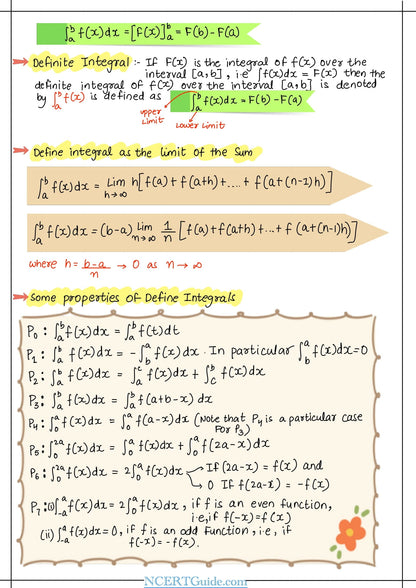 ∫ₐᵇ f(x)dx = [F(x)]ₐᵇ = F(b) - F(a)
Definite Integral :- If F(x) is the integral of f(x) over the
interval [a,b], i.e ∫f(x)dx = F(x) then the
definite integral of f(x) over the interval [a,b] is denoted
by ∫ₐᵇ f(x) is defined as ∫ₐᵇ f(x)dx = F(b) - F(a)
upper Limit
Lower Limit
Define integral as the limit of the Sum
∫ₐᵇ f(x)dx = Lim h→∞ h[f(a) + f(a+h) + .... + f(a+(n-1)h)]
∫ₐᵇ f(x)dx = (b-a) Lim n→∞ 1/n [f(a) + f(a+h) + ... + f (a+(n-1)h)]
where h = b-a/n → 0 as n → ∞
Some properties of Define Integrals
P₀ : ∫ₐᵇ f(x)dx = ∫ₐᵇ f(t)dt
P₁ : ∫ₐᵇ f(x)dx = -∫_b^a f(x)dx . In particular ∫_b^a f(x)dx = 0
P₂ : ∫ₐᵇ f(x)dx = ∫_a^c f(x)dx + ∫_c^b f(x)dx
P₃ : ∫ₐᵇ f(x)dx = ∫ₐᵇ f(a+b-x) dx
P₄ : ∫₀^a f(x)dx = ∫₀^a f(a-x)dx (Note that P₄ is a particular case
For P₃)
P₅ : ∫₀^2a f(x)dx = ∫₀^a f(x)dx + ∫₀^a f(2a-x)dx
P₆ : ∫₀^2a f(x)dx = 2∫₀^a f(x)dx If (2a-x) = f(x) and
0 If f(2a-x) = -f(x)
P₇ : (i) ∫_-a^a f(x)dx = 2∫₀^a f(x)dx, if f is an even function,
i.e, if f(-x) = f(x)
(ii) ∫_-a^a f(x)dx = 0, if f is an odd Function, i.e, if
f(-x) = -f(x).
NCERTGuide.com